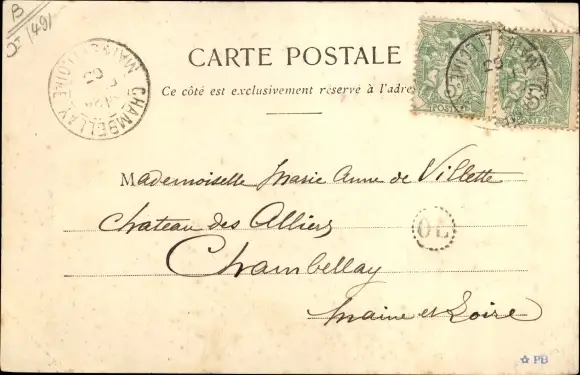 B
(49)
CHAMBELLAY
MAINE ET LOIRE
03
CARTE POSTALE
Ce côté est exclusivement réservé à l'adres
POSTES
POSTES
Mademoiselle Marie Anne de Villette
Chateau des Alliers
OL
Chambellay
Maine et Loire
PB